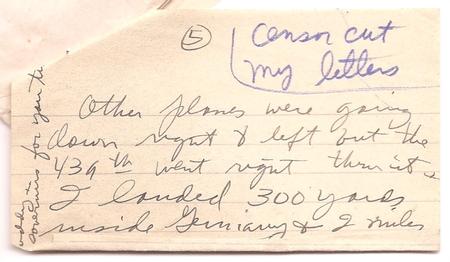 5
Censor cut
my letters
Other planes were going
down right & left but the
439th went right thru it.
I landed 300 yards
inside Germany & 2 miles
souvenirs for you to